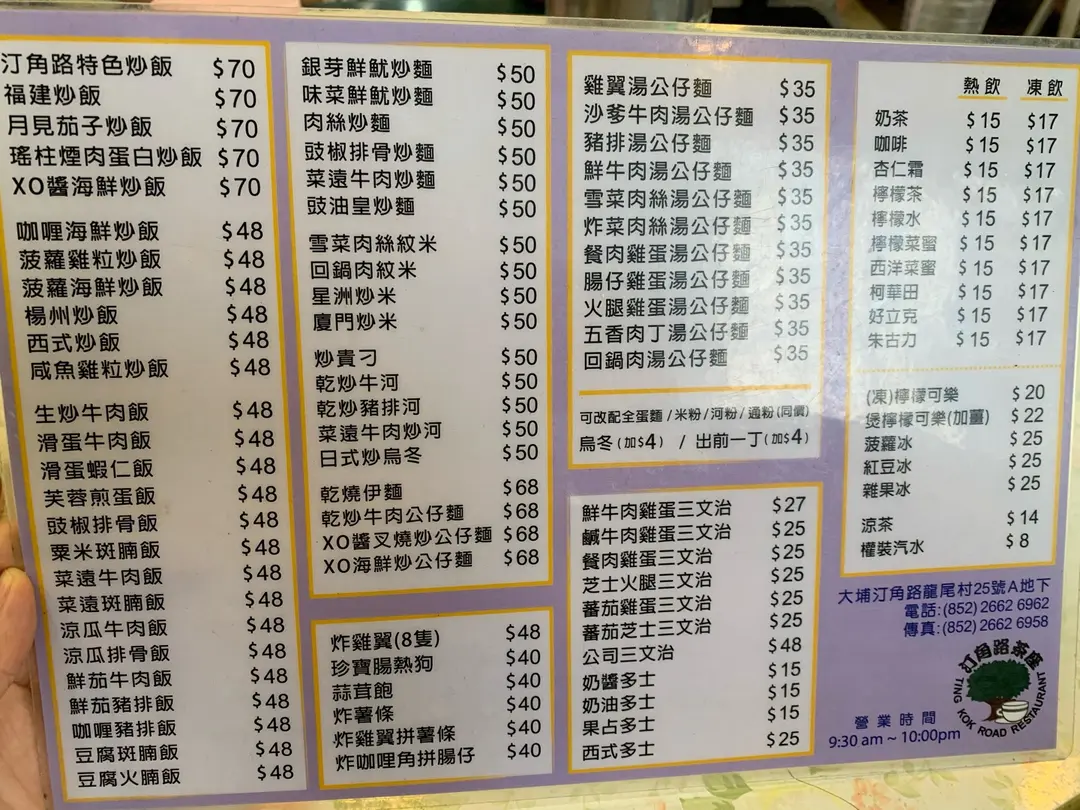 汀角路特色炒飯 $70
福建炒飯 $70
月見茄子炒飯 $70
瑤柱煙肉蛋白炒飯 $70
XO醬海鮮炒飯 $70
咖喱海鮮炒飯 $48
菠蘿雞粒炒飯 $48
菠蘿海鮮炒飯 $48
楊州炒飯 $48
西式炒飯 $48
咸魚雞粒炒飯 $48
生炒牛肉飯 $48
滑蛋牛肉飯 $48
滑蛋蝦仁飯 $48
芙蓉煎蛋飯 $48
豉椒排骨飯 $48
粟米斑腩飯 $48
菜遠牛肉飯 $48
菜遠斑腩飯 $48
涼瓜牛肉飯 $48
涼瓜排骨飯 $48
鮮茄牛肉飯 $48
鮮茄豬排飯 $48
咖喱豬排飯 $48
豆腐斑腩飯 $48
豆腐火腩飯 $48
銀芽鮮魷炒麵 $50
味菜鮮魷炒麵 $50
肉絲炒麵 $50
豉椒排骨炒麵 $50
菜遠牛肉炒麵 $50
豉油皇炒麵 $50
雪菜肉絲紋米 $50
回鍋肉紋米 $50
星洲炒米 $50
廈門炒米 $50
炒貴刁 $50
乾炒牛河 $50
乾炒豬排河 $50
菜遠牛肉炒河 $50
日式炒烏冬 $50
乾燒伊麵 $68
乾炒牛肉公仔麵 $68
XO醬叉燒炒公仔麵 $68
XO海鮮炒公仔麵 $68
炸雞翼(8隻) $48
珍寶腸熱狗 $40
蒜茸飽 $40
炸薯條 $40
炸雞翼拼薯條 $40
炸咖喱角拼腸仔 $40
雞翼湯公仔麵 $35
沙爹牛肉湯公仔麵 $35
豬排湯公仔麵 $35
鮮牛肉湯公仔麵 $35
雪菜肉絲湯公仔麵 $35
炸菜肉絲湯公仔麵 $35
餐肉雞蛋湯公仔麵 $35
腸仔雞蛋湯公仔麵 $35
火腿雞蛋湯公仔麵 $35
五香肉丁湯公仔麵 $35
回鍋肉湯公仔麵 $35
可改配全蛋麵/米粉/河粉/通粉(同價)
烏冬(加$4) / 出前一丁(加$4)
鮮牛肉雞蛋三文治 $27
鹹牛肉雞蛋三文治 $25
餐肉雞蛋三文治 $25
芝士火腿三文治 $25
蕃茄雞蛋三文治 $25
蕃茄芝士三文治 $25
公司三文治 $48
奶醬多士 $15
奶油多士 $15
果占多士 $15
西式多士 $25
熱飲 凍飲
奶茶 $15 $17
咖啡 $15 $17
杏仁霜 $15 $17
檸檬茶 $15 $17
檸檬水 $15 $17
檸檬菜蜜 $15 $17
西洋菜蜜 $15 $17
柯華田 $15 $17
好立克 $15 $17
朱古力 $15 $17
(凍)檸檬可樂 $20
煲檸檬可樂(加薑) $22
菠蘿冰 $25
紅豆冰 $25
雜果冰 $25
涼茶 $14
樽裝汽水 $8
大埔汀角路龍尾村25號A地下
電話:(852) 2662 6962
傳真:(852) 2662 6958
汀角路茶座
TING KOK ROAD RESTAURANT
營業時間
9:30 am ~ 10:00pm